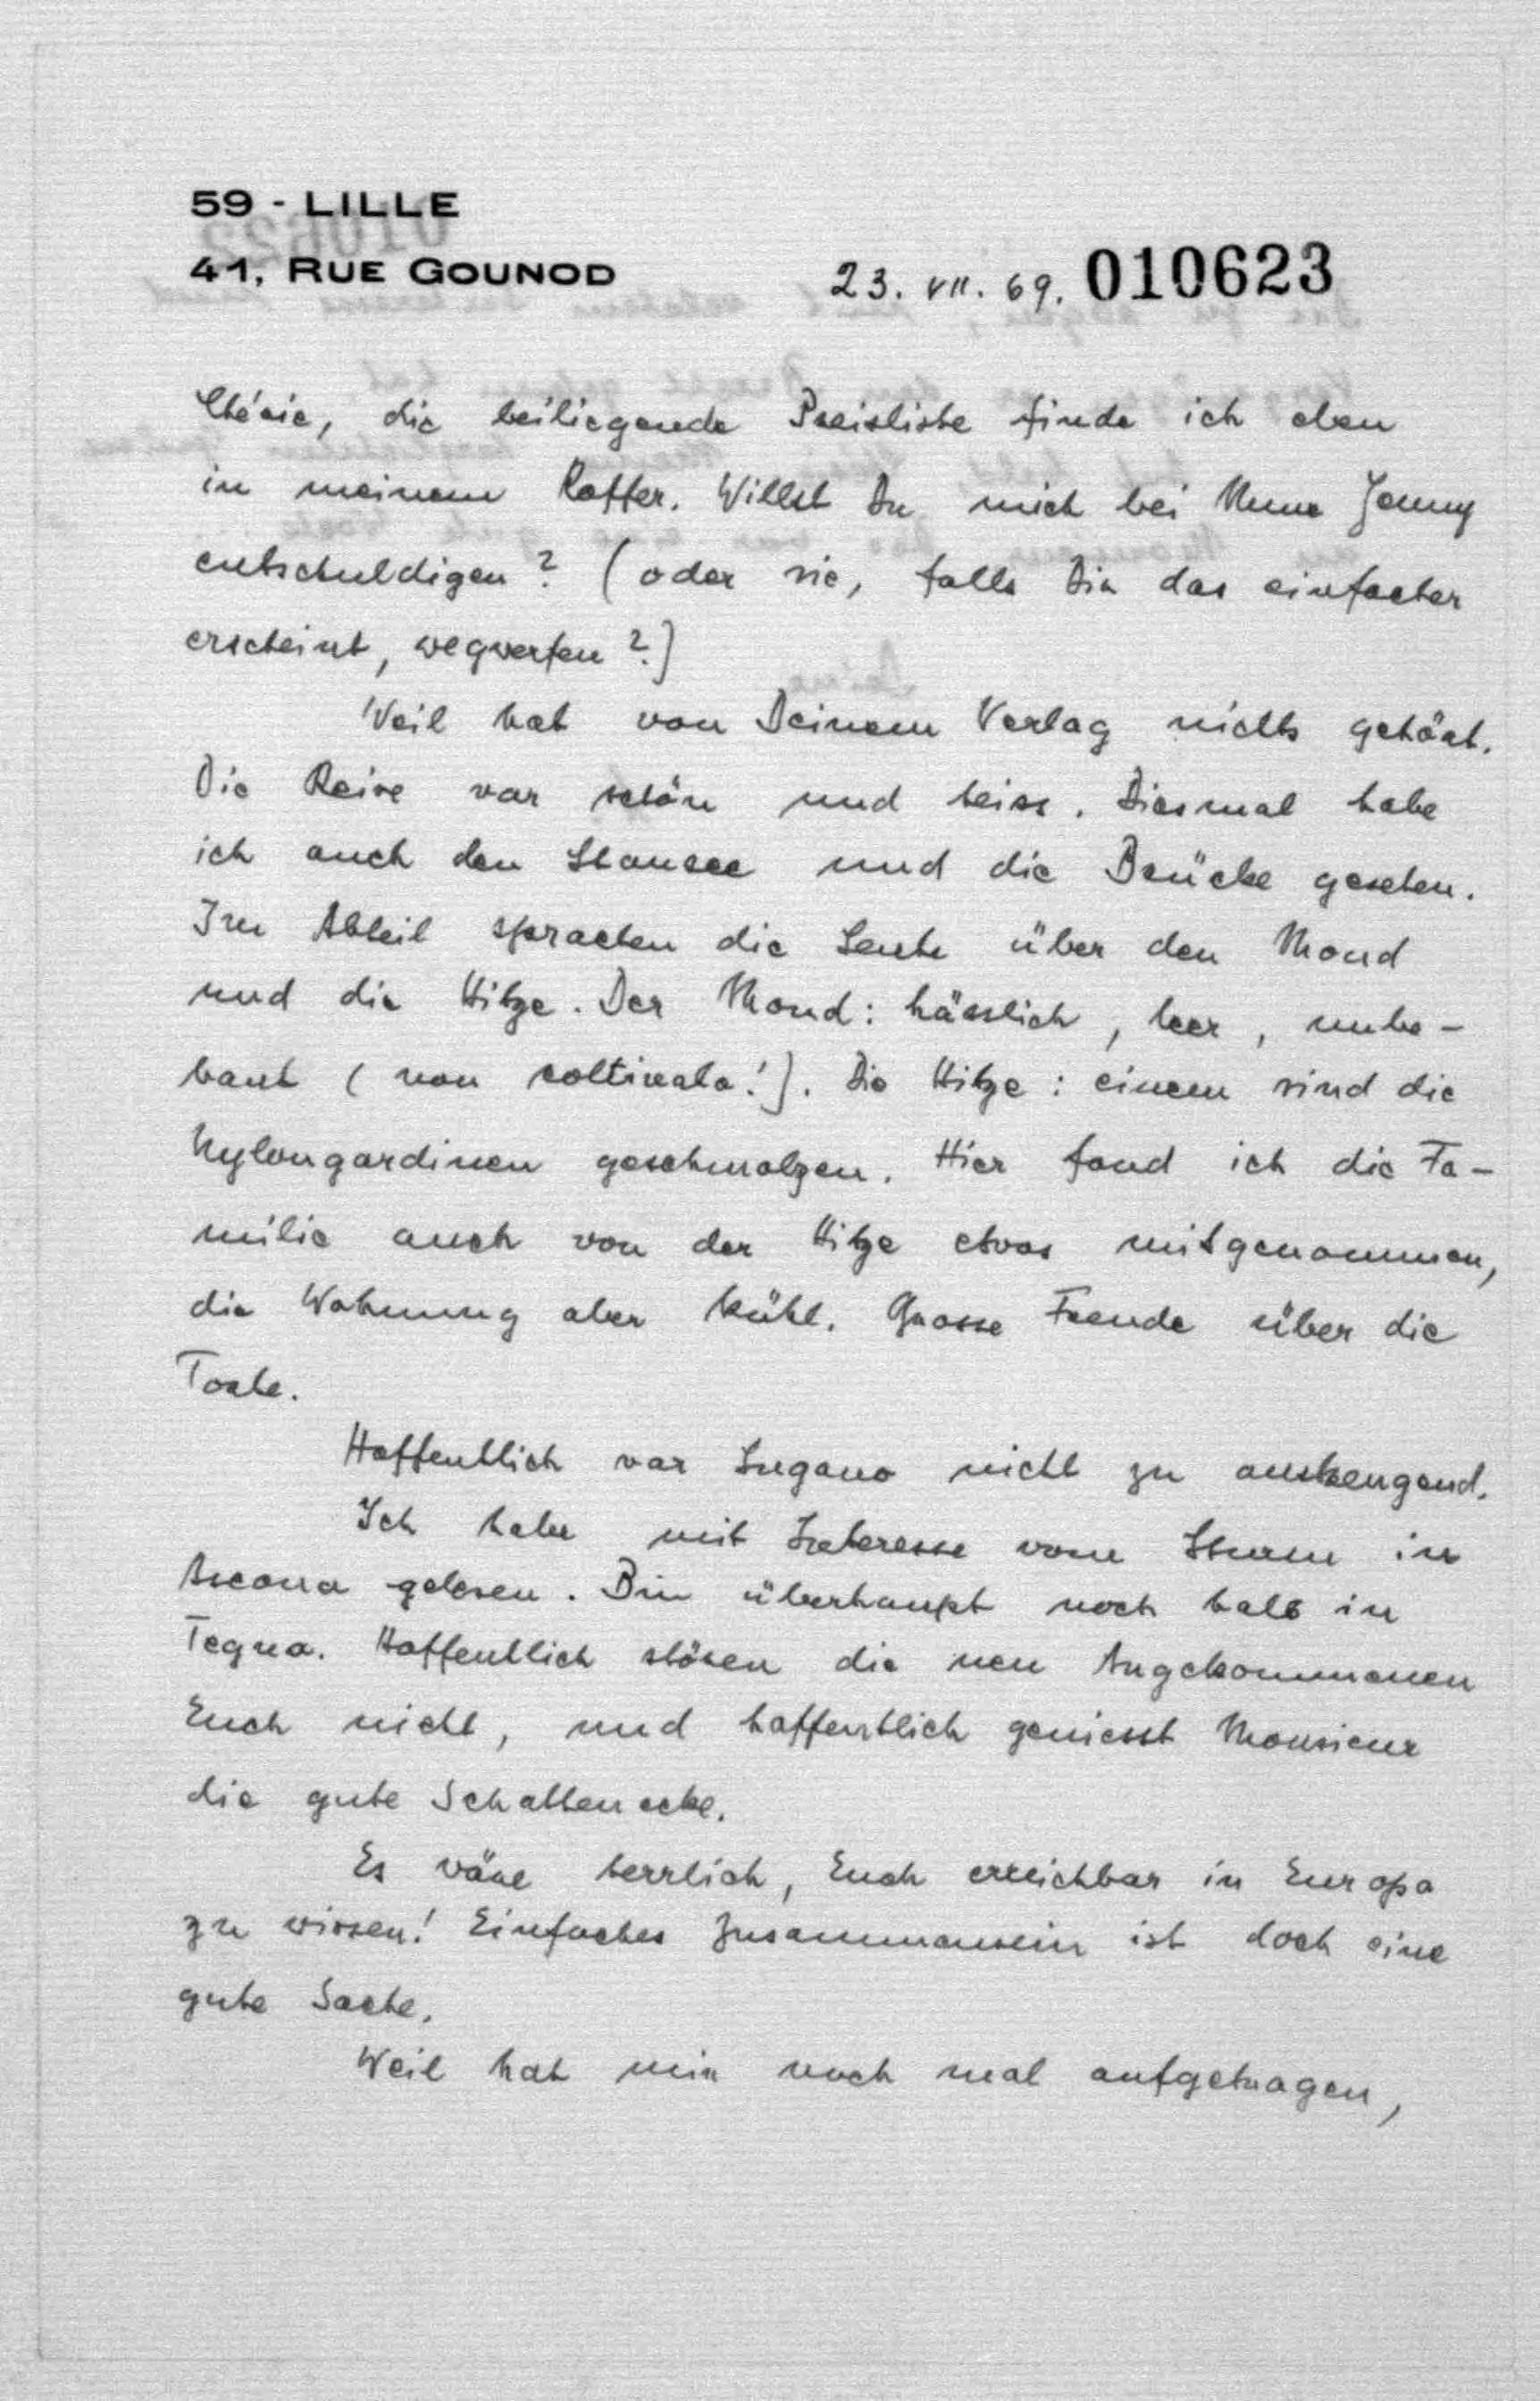 59 - LILLE
41, RUE GOUNOD
23. VII. 69. 010623
Chérie, die beiliegende Preisliste finde ich eben
in meinem Koffer. Willst Du mich bei Mme Jenny
entschuldigen? (oder sie, falls Dir das einfacher
erscheint, wegwerfen?)
Weil hat von Deinem Verlag nichts gehört.
Die Reise war schön und heiss. Diesmal habe
ich auch den Stausee und die Brücke gesehen.
Im Abteil sprachen die Leute über den Mond
und die Hitze. Der Mond: hässlich, leer, unbe-
baut (non coltivato!). Die Hitze: einem sind die
Nylongardinen geschmolzen. Hier fand ich die Fa-
milie auch von der Hitze etwas mitgenommen,
die Wohnung aber kühl. Grosse Freude über die
Torte.
Hoffentlich war Lugano nicht zu anstrengend.
Ich habe mit Interesse vom Sturm in
Ascona gelesen. Bin überhaupt noch halb in
Tegna. Hoffentlich stören die neu Angekommenen
Euch nicht, und hoffentlich geniesst Monsieur
die gute Schattenecke.
Es wäre herrlich, Euch erreichbar in Europa
zu wissen! Einfaches Zusammensein ist doch eine
gute Sache.
Weil hat mir noch mal aufgetragen,